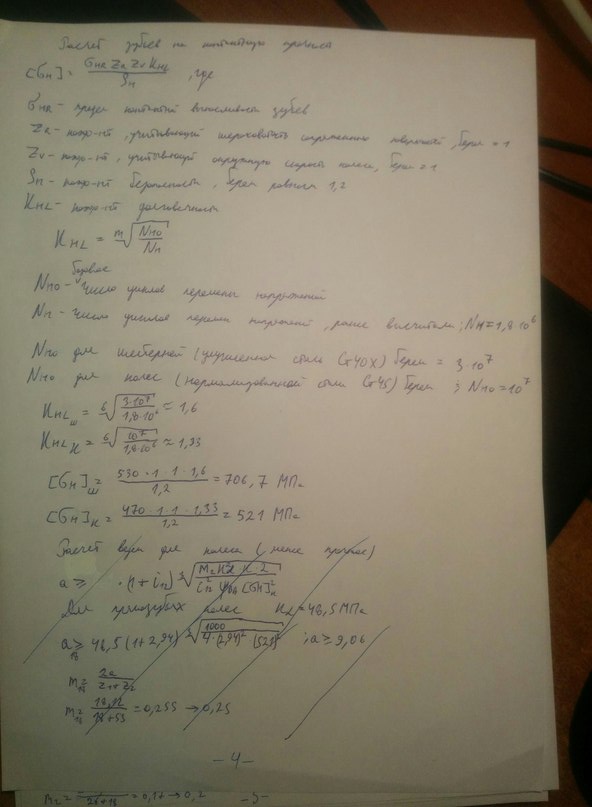 Расчет зубьев на контактную прочность
[σн] = σHR ZR ZV KHL / Sн , где
σHR - предел контактной выносливости зубьев
ZR - коэф-нт, учитывающий шероховатость сопряженных поверхностей, берем = 1
ZV - коэф-нт, учитывающий окружную скорость колеса, берем = 1
Sн - коэф-нт безопасности, берем равным 1,2
KHL - коэф-нт долговечности
KHL = m√(NHO / NH)
базовое
NHO - число циклов перемены напряжений
NH - число циклов перемен напряжений, ранее высчитали; NH = 1,8·10^6
NHO для шестерней (улучшенная сталь Ст40Х) берем = 3·10^7
NHO для колес (нормализованной стали Ст45) берем ; NHO = 10^7
KHLш = 6√(3·10^7 / 1,8·10^6) ≈ 1,6
KHLк = 6√(10^7 / 1,8·10^6) ≈ 1,33
[σн]ш = 530·1·1·1,6 / 1,2 = 706,7 МПа
[σн]к = 470·1·1·1,33 / 1,2 = 521 МПа
Расчет ведем для колеса (менее прочное)
a ≥
Для прямозубых колес = 48,5 МПа
a ≥ 48,5 (1+2,94) 3√(1000 / 4·(2,94)^2 (521)^2) ; a ≥ 9,06
m = 2a / Z1+Z2
m = 18,12 / 18+53 = 0,255 → 0,25
- 4 -
= 0,17 → 0,2